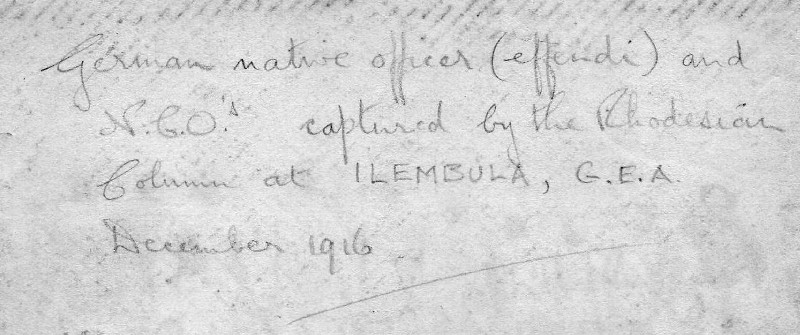 German native officer (effendi) and
N.C.O.'s captured by the Rhodesian
Column at ILEMBULA, G.E.A.
December 1916